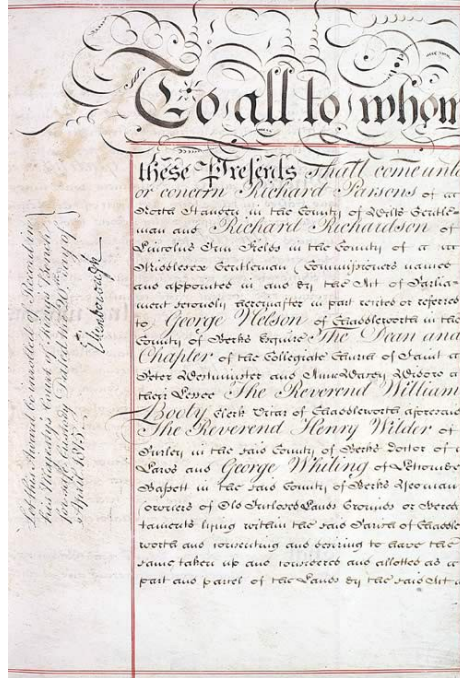 To all to whom
these Presents shall come unto
or concern Richard Parsons of
North Standen in the County of Wilts Gentle-
man and Richard Richardson of
Lincolns Inn Fields in the County of
Middlesex Gentleman Commissioners named
and appointed in and by the Act of Parlia-
ment seriously hereinafter in part recited or referred
to George Nelson of Chaddleworth in the
County of Berks Esquire The Dean and
Chapter of the Collegiate Church of Saint
Peter Westminster and Ann Widow
their Lessee The Reverend William
Booty Clerk Vicar of Chaddleworth aforesaid
The Reverend Henry Wilder of
Purley in the said County of Berks Doctor of
Laws and George Whiting of
Bassett in the said County of Berks Yeoman
owners of Old Inclosed Lands Grounds or Heredi
taments lying within the said Parish of Chaddle
worth and consenting and desiring to have the
same taken up and considered and allotted as a
part and parcel of the Lands by the said Act
Let this Award be inrolled of Record in
his Majestys Court of Kings Bench
for safe custody Dated this 20th day of
April 1815
Ellenborough